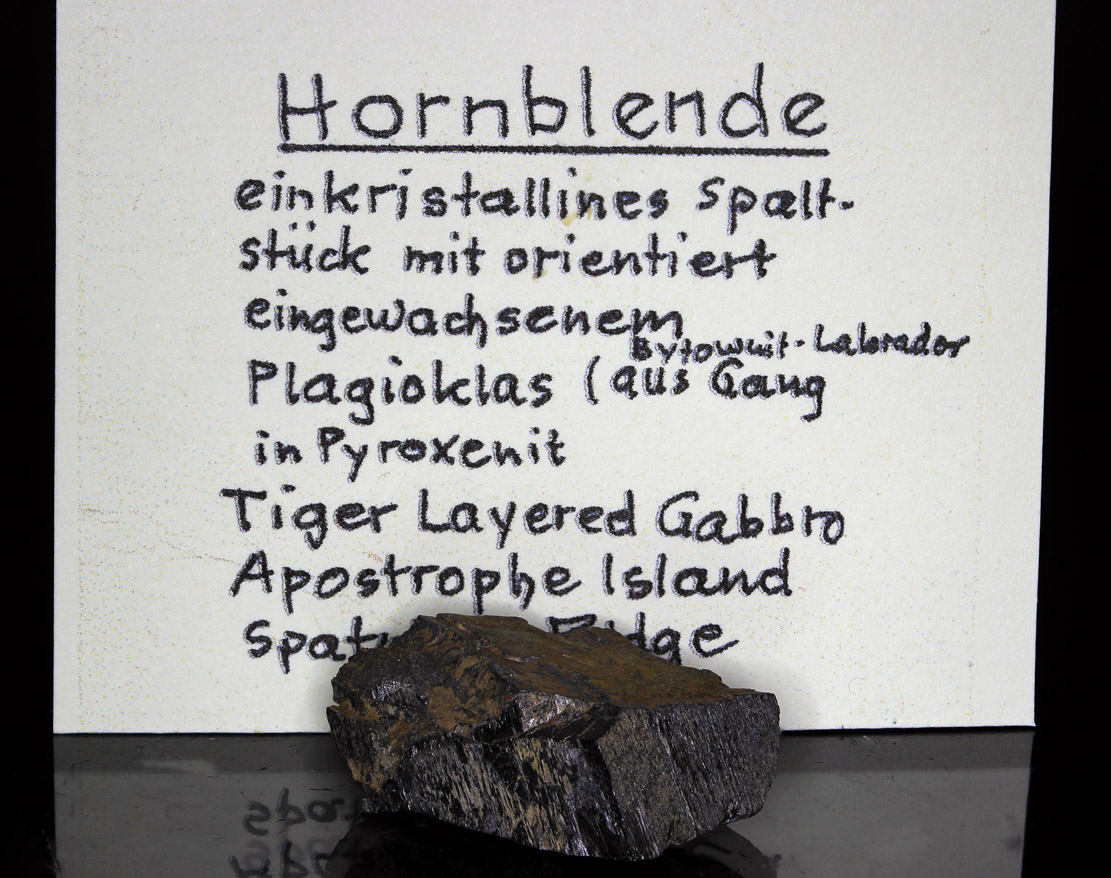 Hornblende
einkristallines Spalt-
stück mit orientiert
eingewachsenem
Bytownit-Labrador
Plagioklas (aus Gang
in Pyroxenit
Tiger Layered Gabbro
Apostrophe Island
Ridge